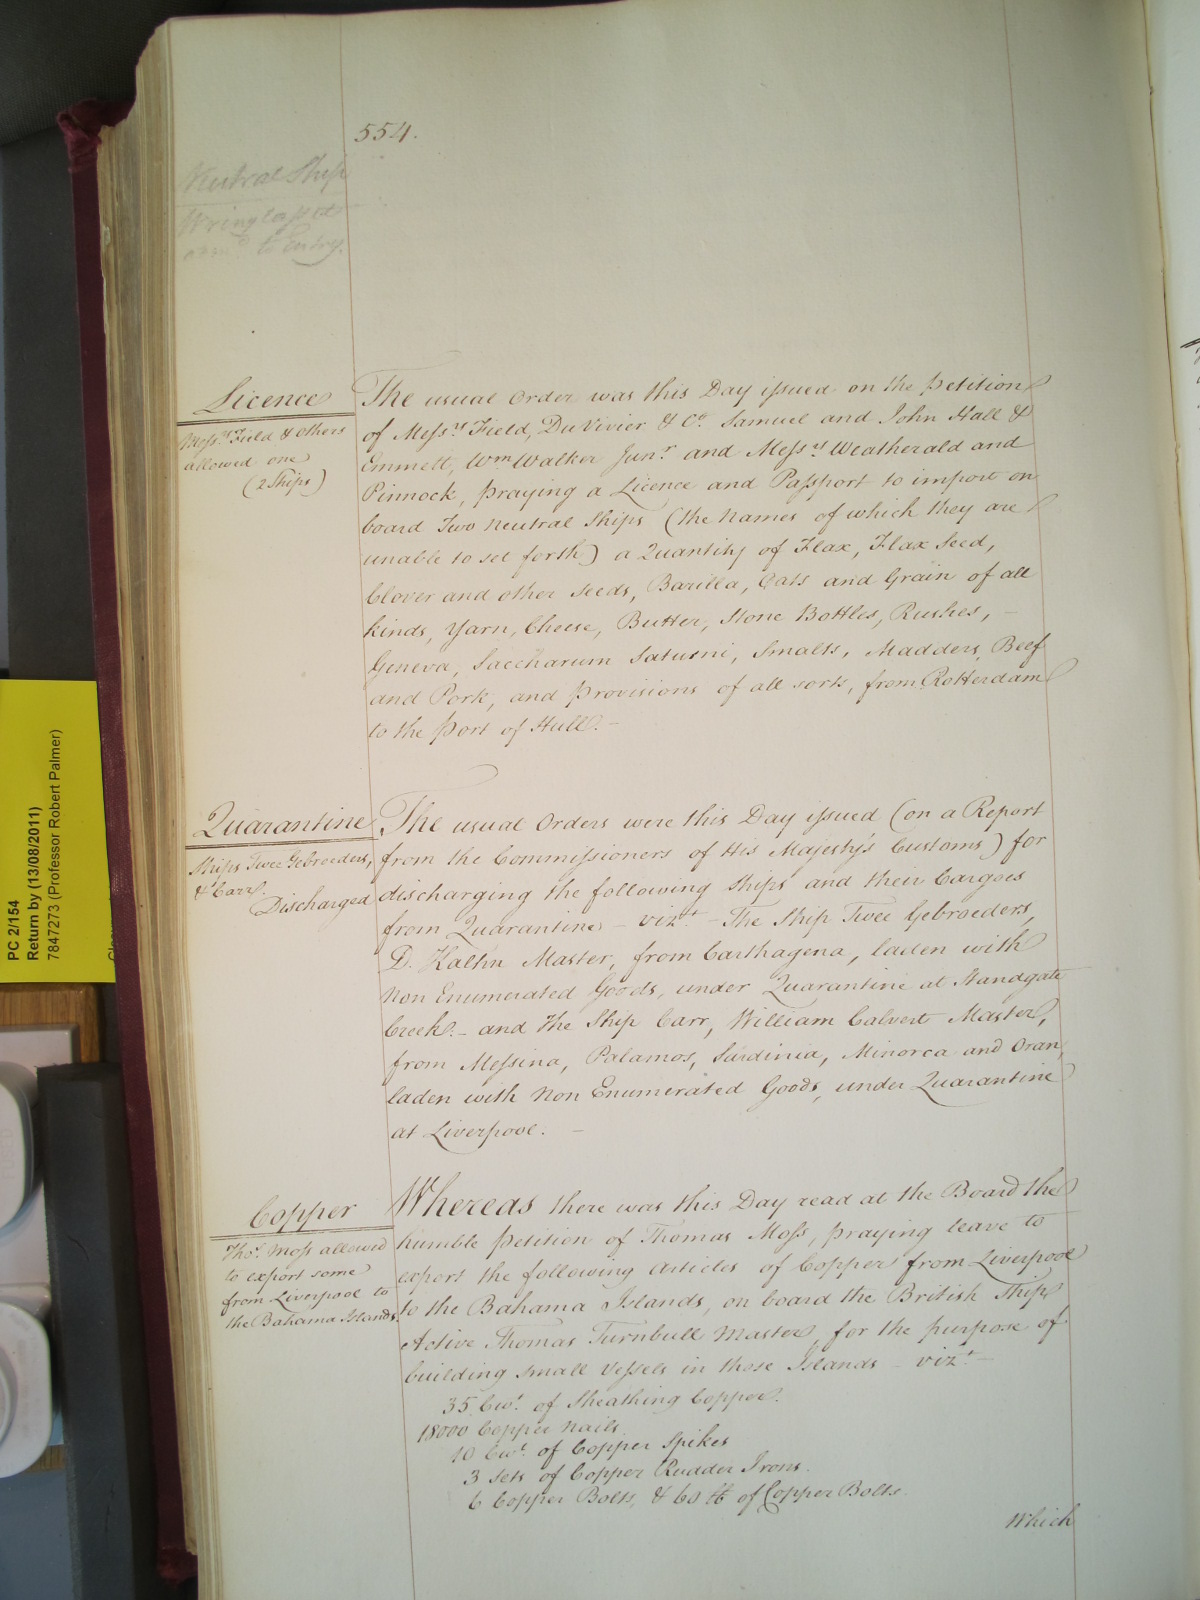 554.
Neutral Ship
to Entry.
Licence
Mess.rs Field & others
allowed one
(2 Ships)
The usual Order was this Day issued on the Petition
of Mess.rs Field, DuVivier & Co. Samuel and John Hall &
Emmett, Wm Walker Junr. and Mess.rs Weatherald and
Pinnock, praying a Licence and Passport to import on
board Two Neutral Ships (the Names of which they are
unable to set forth) a Quantity of Flax, Flax Seed,
Clover and other Seeds, Barilla, Oats and Grain of all
kinds, Yarn, Cheese, Butter, Stone Bottles, Rushes, –
Geneva, Saccharum Saturni, Smalts, Madders, Beef
and Pork, and Provisions of all sorts, from Rotterdam
to the Port of Hull. –
Quarantine
Ships Twee Gebroeders,
& Carr.
Discharged
The usual Orders were this Day issued (on a Report
from the Commissioners of His Majesty's Customs) for
discharging the following Ships and their Cargoes
from Quarantine – vizt. – The Ship Twee Gebroeders,
D. Kaehn Master, from Carthagena, laden with
Non Enumerated Goods, under Quarantine at Standgate
Creek. – and The Ship Carr, William Calvert Master,
from Messina, Palamos, Sardinia, Minorca and Oran,
laden with Non Enumerated Goods, under Quarantine
at Liverpool. –
Copper
Thos. Moss allowed
to export some
from Liverpool to
the Bahama Islands.
Whereas there was this Day read at the Board the
humble Petition of Thomas Moss, praying leave to
export the following Articles of Copper from Liverpool
to the Bahama Islands, on board the British Ship
Active Thomas Turnbull Master, for the purpose of
building small Vessels in those Islands – vizt. –
35 Cwt. of Sheathing Copper.
18000 Copper Nails
10 Cwt. of Copper Spikes
3 Sets of Copper Rudder Irons.
6 Copper Bolts, & 60 lb of Copper Bolts.
Which
PC 2/154
Return by (13/08/2011)
7847273 (Professor Robert Palmer)